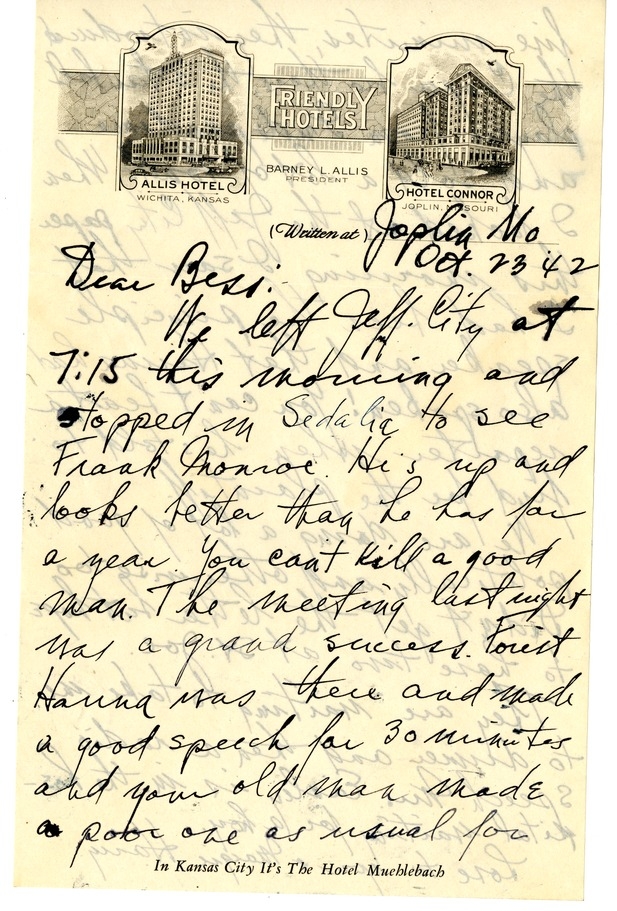 FRIENDLY
HOTELS
ALLIS HOTEL
WICHITA, KANSAS
BARNEY L. ALLIS
PRESIDENT
HOTEL CONNOR
JOPLIN, MISSOURI
(Written at) Joplin Mo
Oct. 23 42
Dear Bess:
We left Jeff. City at
7:15 this morning and
stopped in Sedalia to see
Frank Monroe. He's up and
looks better than he has for
a year. You can't kill a good
man. The meeting last night
was a grand success. Forest
Hanna was there and made
a good speech for 30 minutes
and your old man made
a poor one as usual for
In Kansas City It's The Hotel Muehlebach